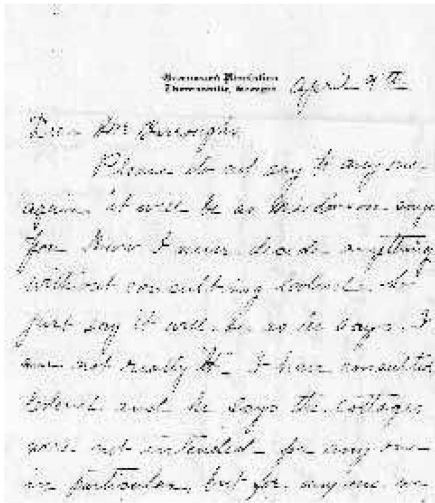 Greenwood Plantation
Thomasville, Georgia
April 9th
Dear Mr Burroughs
Please do not say to anyone
again it will be as says
for I never decide anything
without consulting
just say it will be as he says. I
am not really it. I have consulted
and he says the cottages
were not intended for any one
in particular, but for anyone we